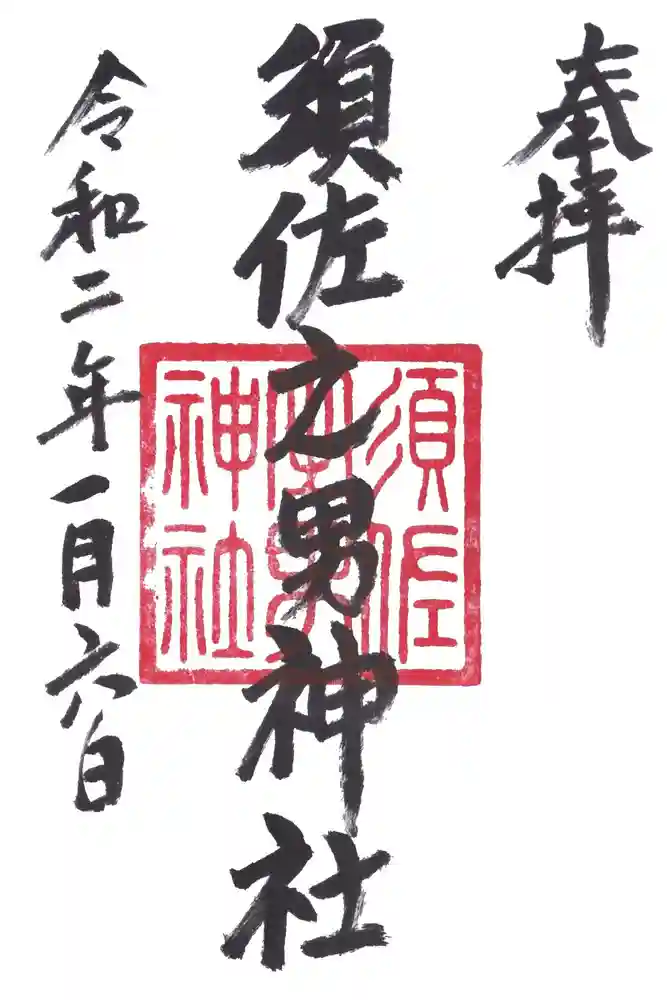 奉拝
須佐之男神社
令和二年一月六日
須佐
神社